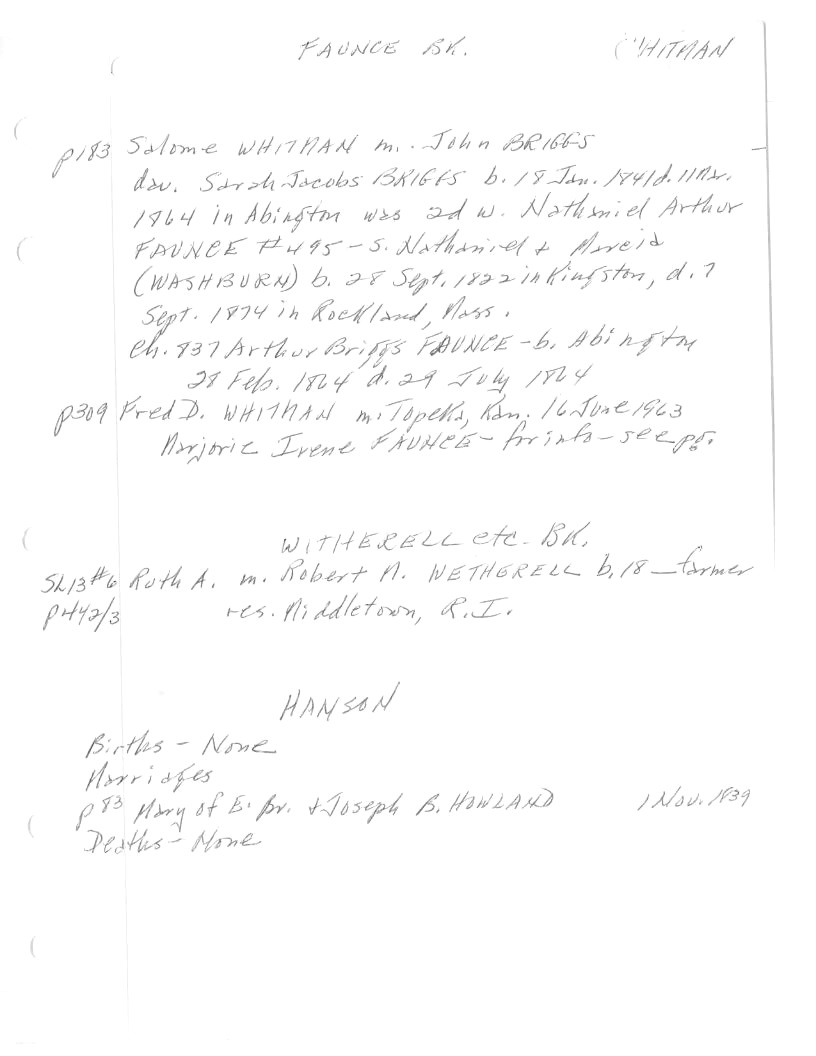 FAUNCE BK. WHITMAN
p183 Salome WHITMAN m. John BRIGGS
dau. Sarah Jacobs BRIGGS b. 18 Jan. 1841 d. 11 Mar.
1864 in Abington was 2d w. Nathaniel Arthur
FAUNCE #495 - s. Nathaniel + Marcia
(WASHBURN) b. 28 Sept. 1822 in Kingston, d. 7
Sept. 1874 in Rockland, Mass.
Ch. 837 Arthur Briggs FAUNCE - b. Abington
28 Feb. 1864 d. 29 July 1864
p309 Fred D. WHITMAN m. Topeka, Kan. 16 June 1963
Marjorie Irene FAUNCE - for info - see pg.
WITHERELL etc. BK.
SL13 #6 Ruth A. m. Robert N. WETHERELL b. 18 _ farmer
p442/3 res. Middletown, R.I.
HANSON
Births - None
Marriages
p83 Mary of E. Br. + Joseph B. HOWLAND 1 Nov. 1839
Deaths - None